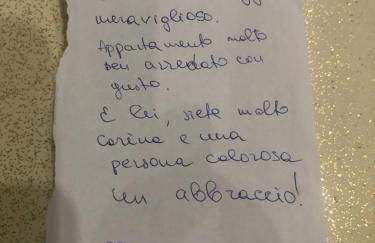 meraviglioso.
Appartamento molto
ben arredato con
gusto.
E lei, siete molto
carina e una
persona calorosa
Un abbraccio!